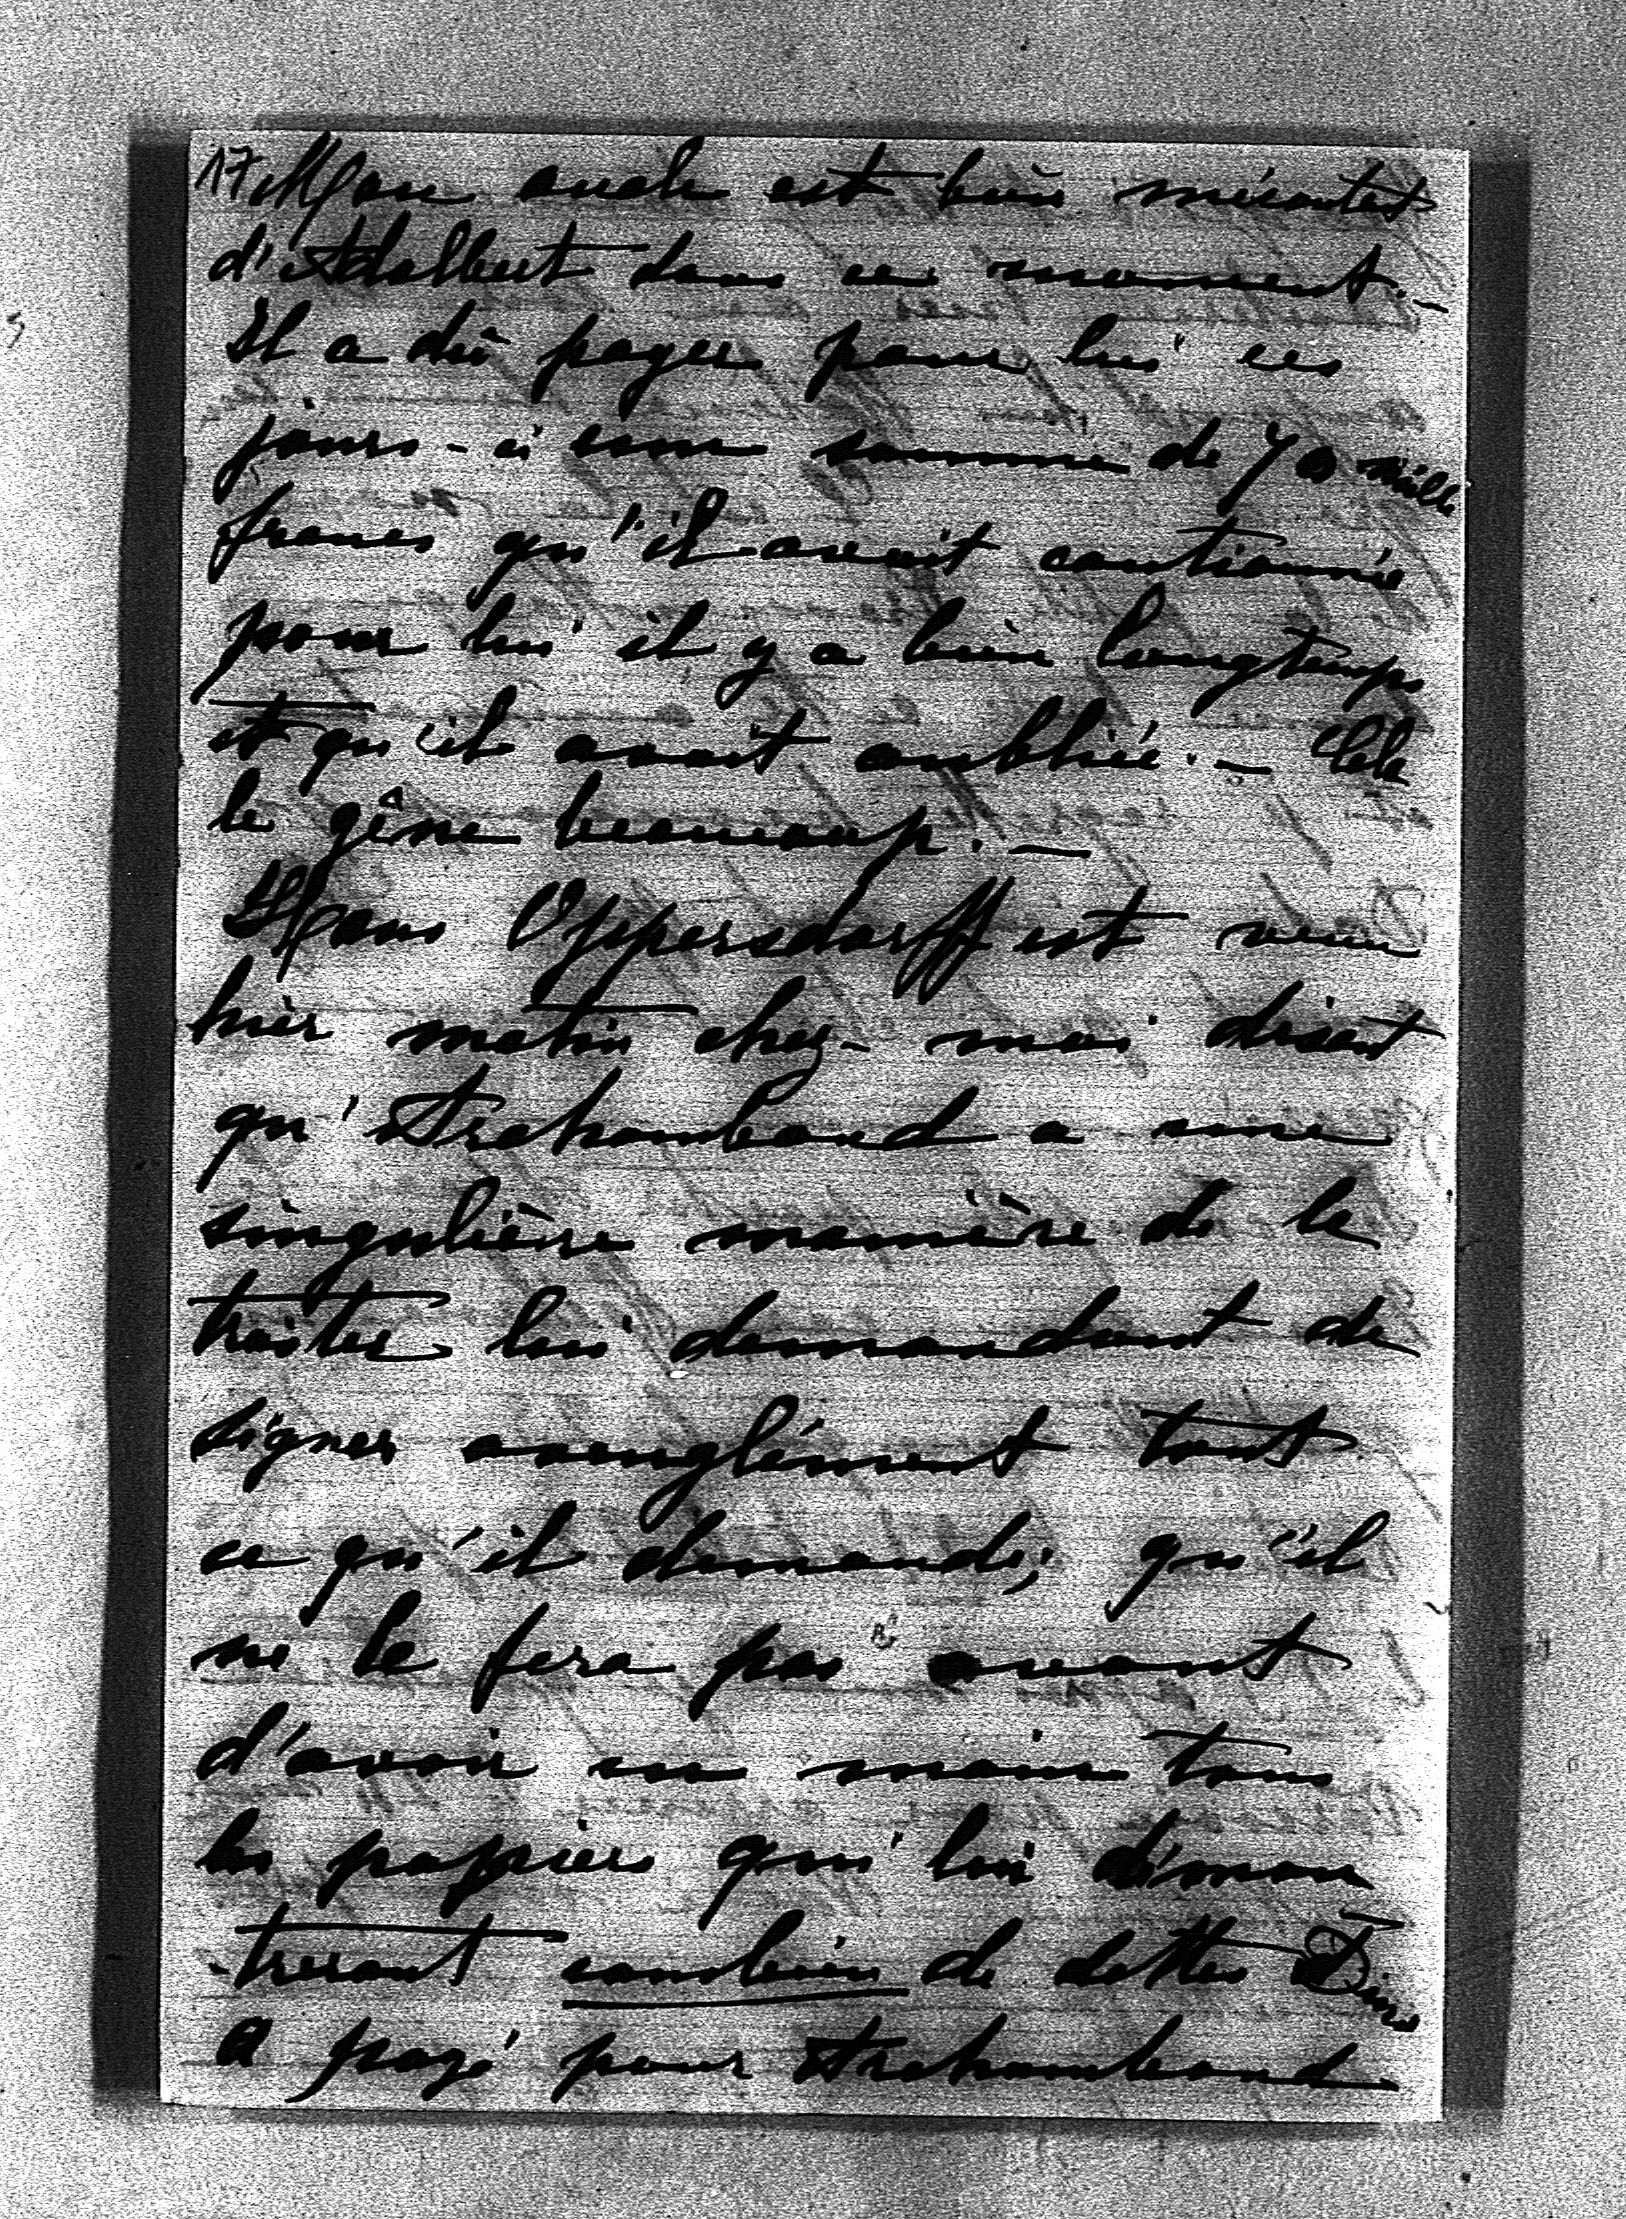 17 Mon oncle est bien mécontent
d'Adalbert dans ce moment. –
Il a dû payer pour lui ces
jours-ci une somme de 70 mille
francs qu'il avait cautionnée
pour lui il y a bien longtemps
et qu'il avait oubliée. – Cela
le gêne beaucoup. –
Hans Oppersdorff est venu
hier matin chez-moi disant
qu'Archambaud a une
singulière manière de le
traiter lui demandant de
signer aveuglément tout
ce qu'il demande; qu'il
ne le fera pas avant
d'avoir en mains tous
les papiers qui lui démon
-treront combien de dettes Dino
a payé pour Archambaud